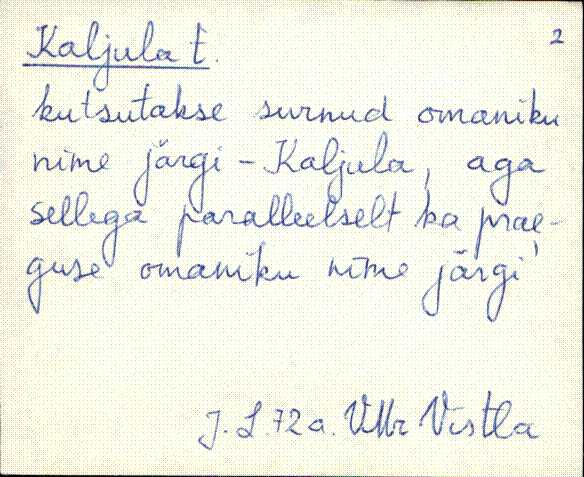 Kaljula t. 2
kutsutakse surnud omaniku
nime järgi - Kaljula, aga
sellega paralleelselt ka prae-
guse omaniku nime järgi
J. S. 72 a. VMr Vistla